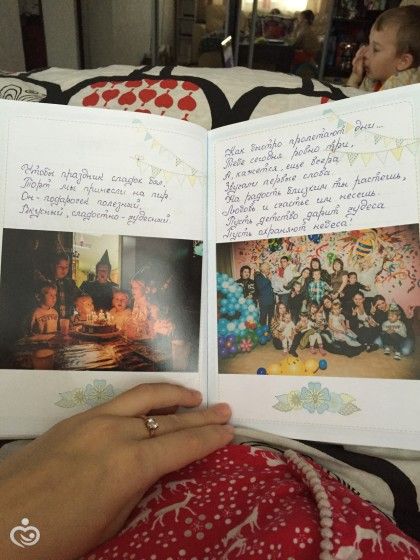 Чтобы праздник сладок был,
Торт мы принесли на пир
Он - подарочек полезный,
Вкусный, сладостно - чудесный!
Как быстро пролетают дни...
Тебе сегодня ровно три,
А, кажется, ещё вчера
Звучали первые слова.
На радость близким ты растёшь,
Любовь и счастье им несёшь.
Пусть детство дарит чудеса
Пусть охраняют небеса!